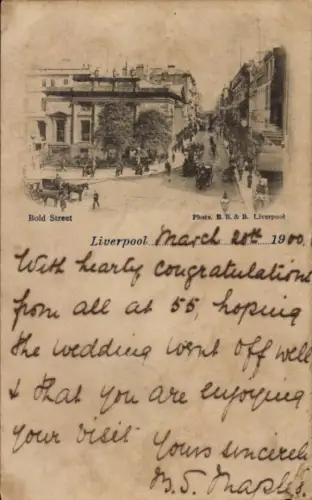 Bold Street
Photo. B. B. & B. Liverpool
Liverpool March 20th 1900.
With hearty congratulations
from all at 55, hoping
the wedding went off well
& that you are enjoying
your visit
Yours sincerely